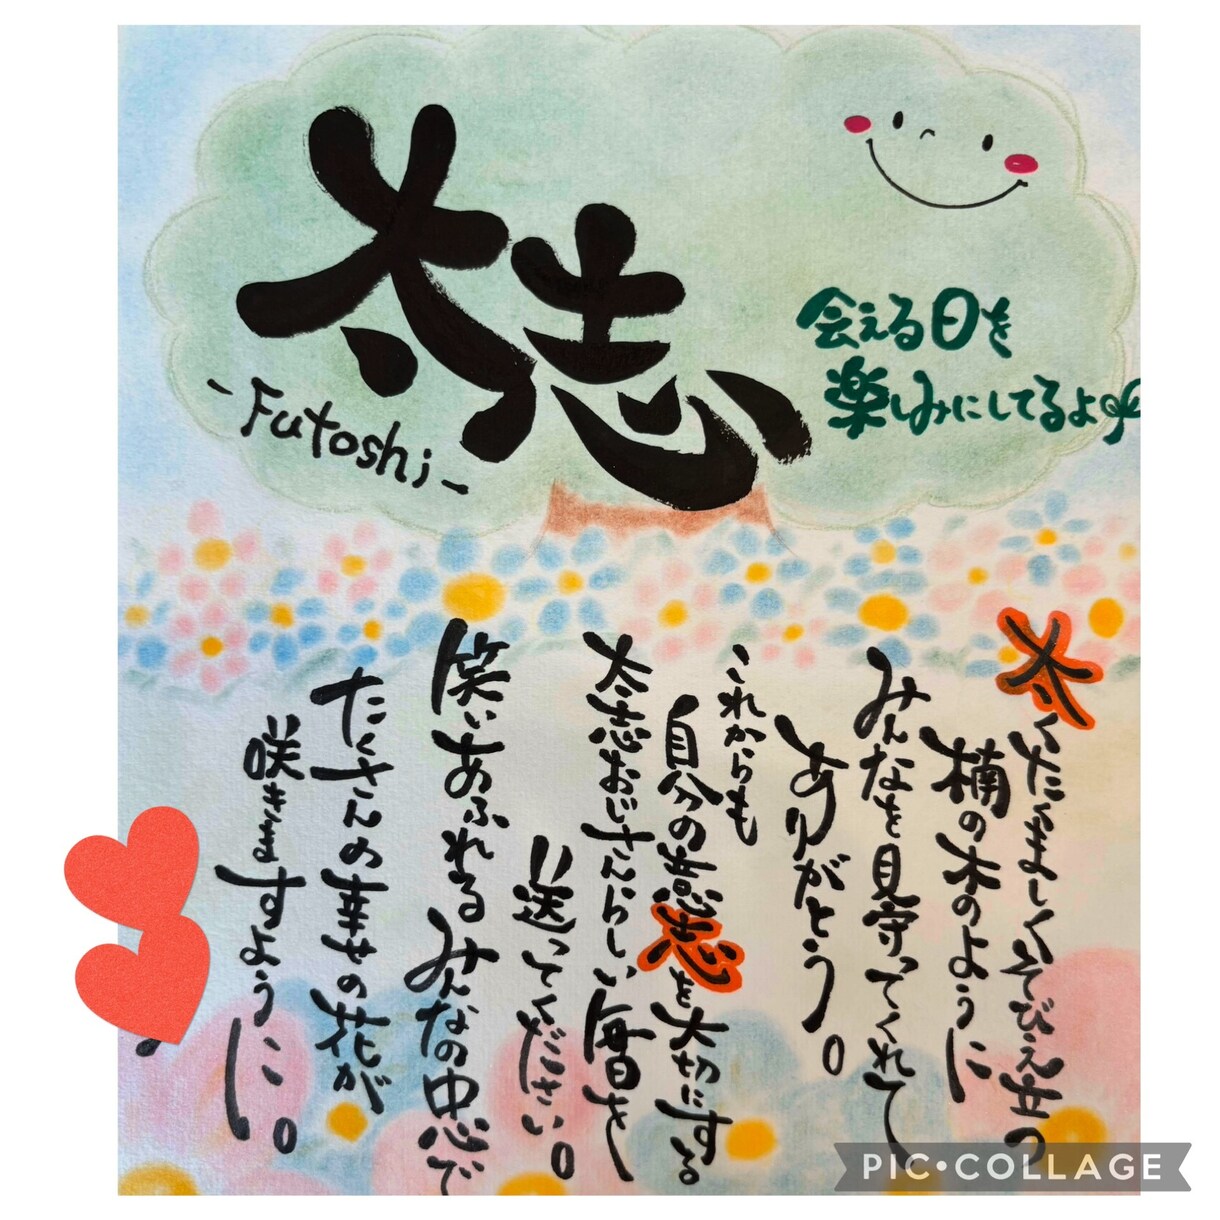 太志
-Futoshi-
会える日を
楽しみにしてるよ
太くたくましくそびえ立つ
楠の木のように
みんなを見守ってくれて
ありがとう。
これからも
自分の意志を大切にする
太志おにさんらしい毎日を
送ってください。
笑いあふれるみんなの中心で
たくさんの幸せの花が
咲きますように。
PIC•COLLAGE